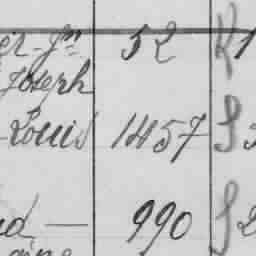 er-Jn 52 R1
Joseph
-Louis 1457 S
d — 990 S2